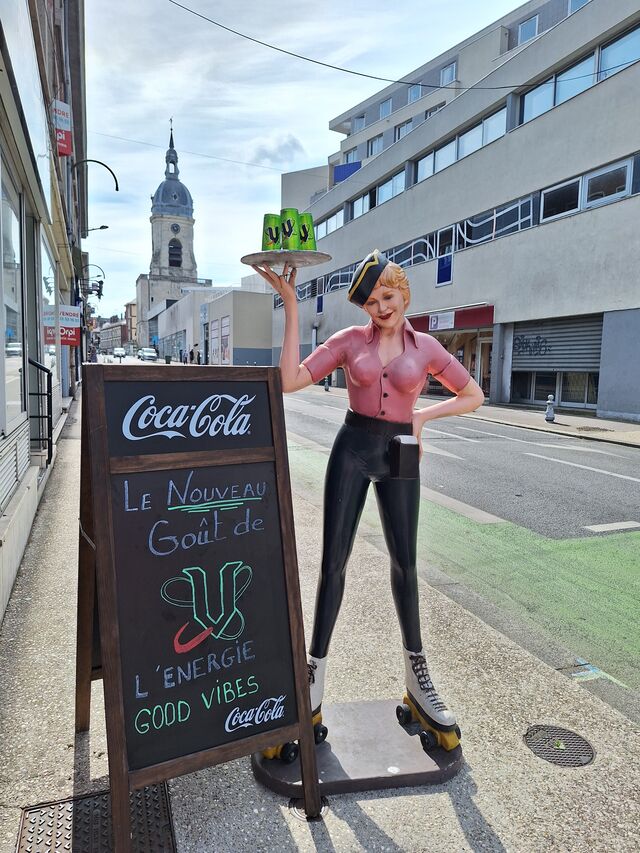 Coca-Cola
LE NOUVEAU
Goût de
V
L'ENERGIE
GOOD VIBES
Coca-Cola